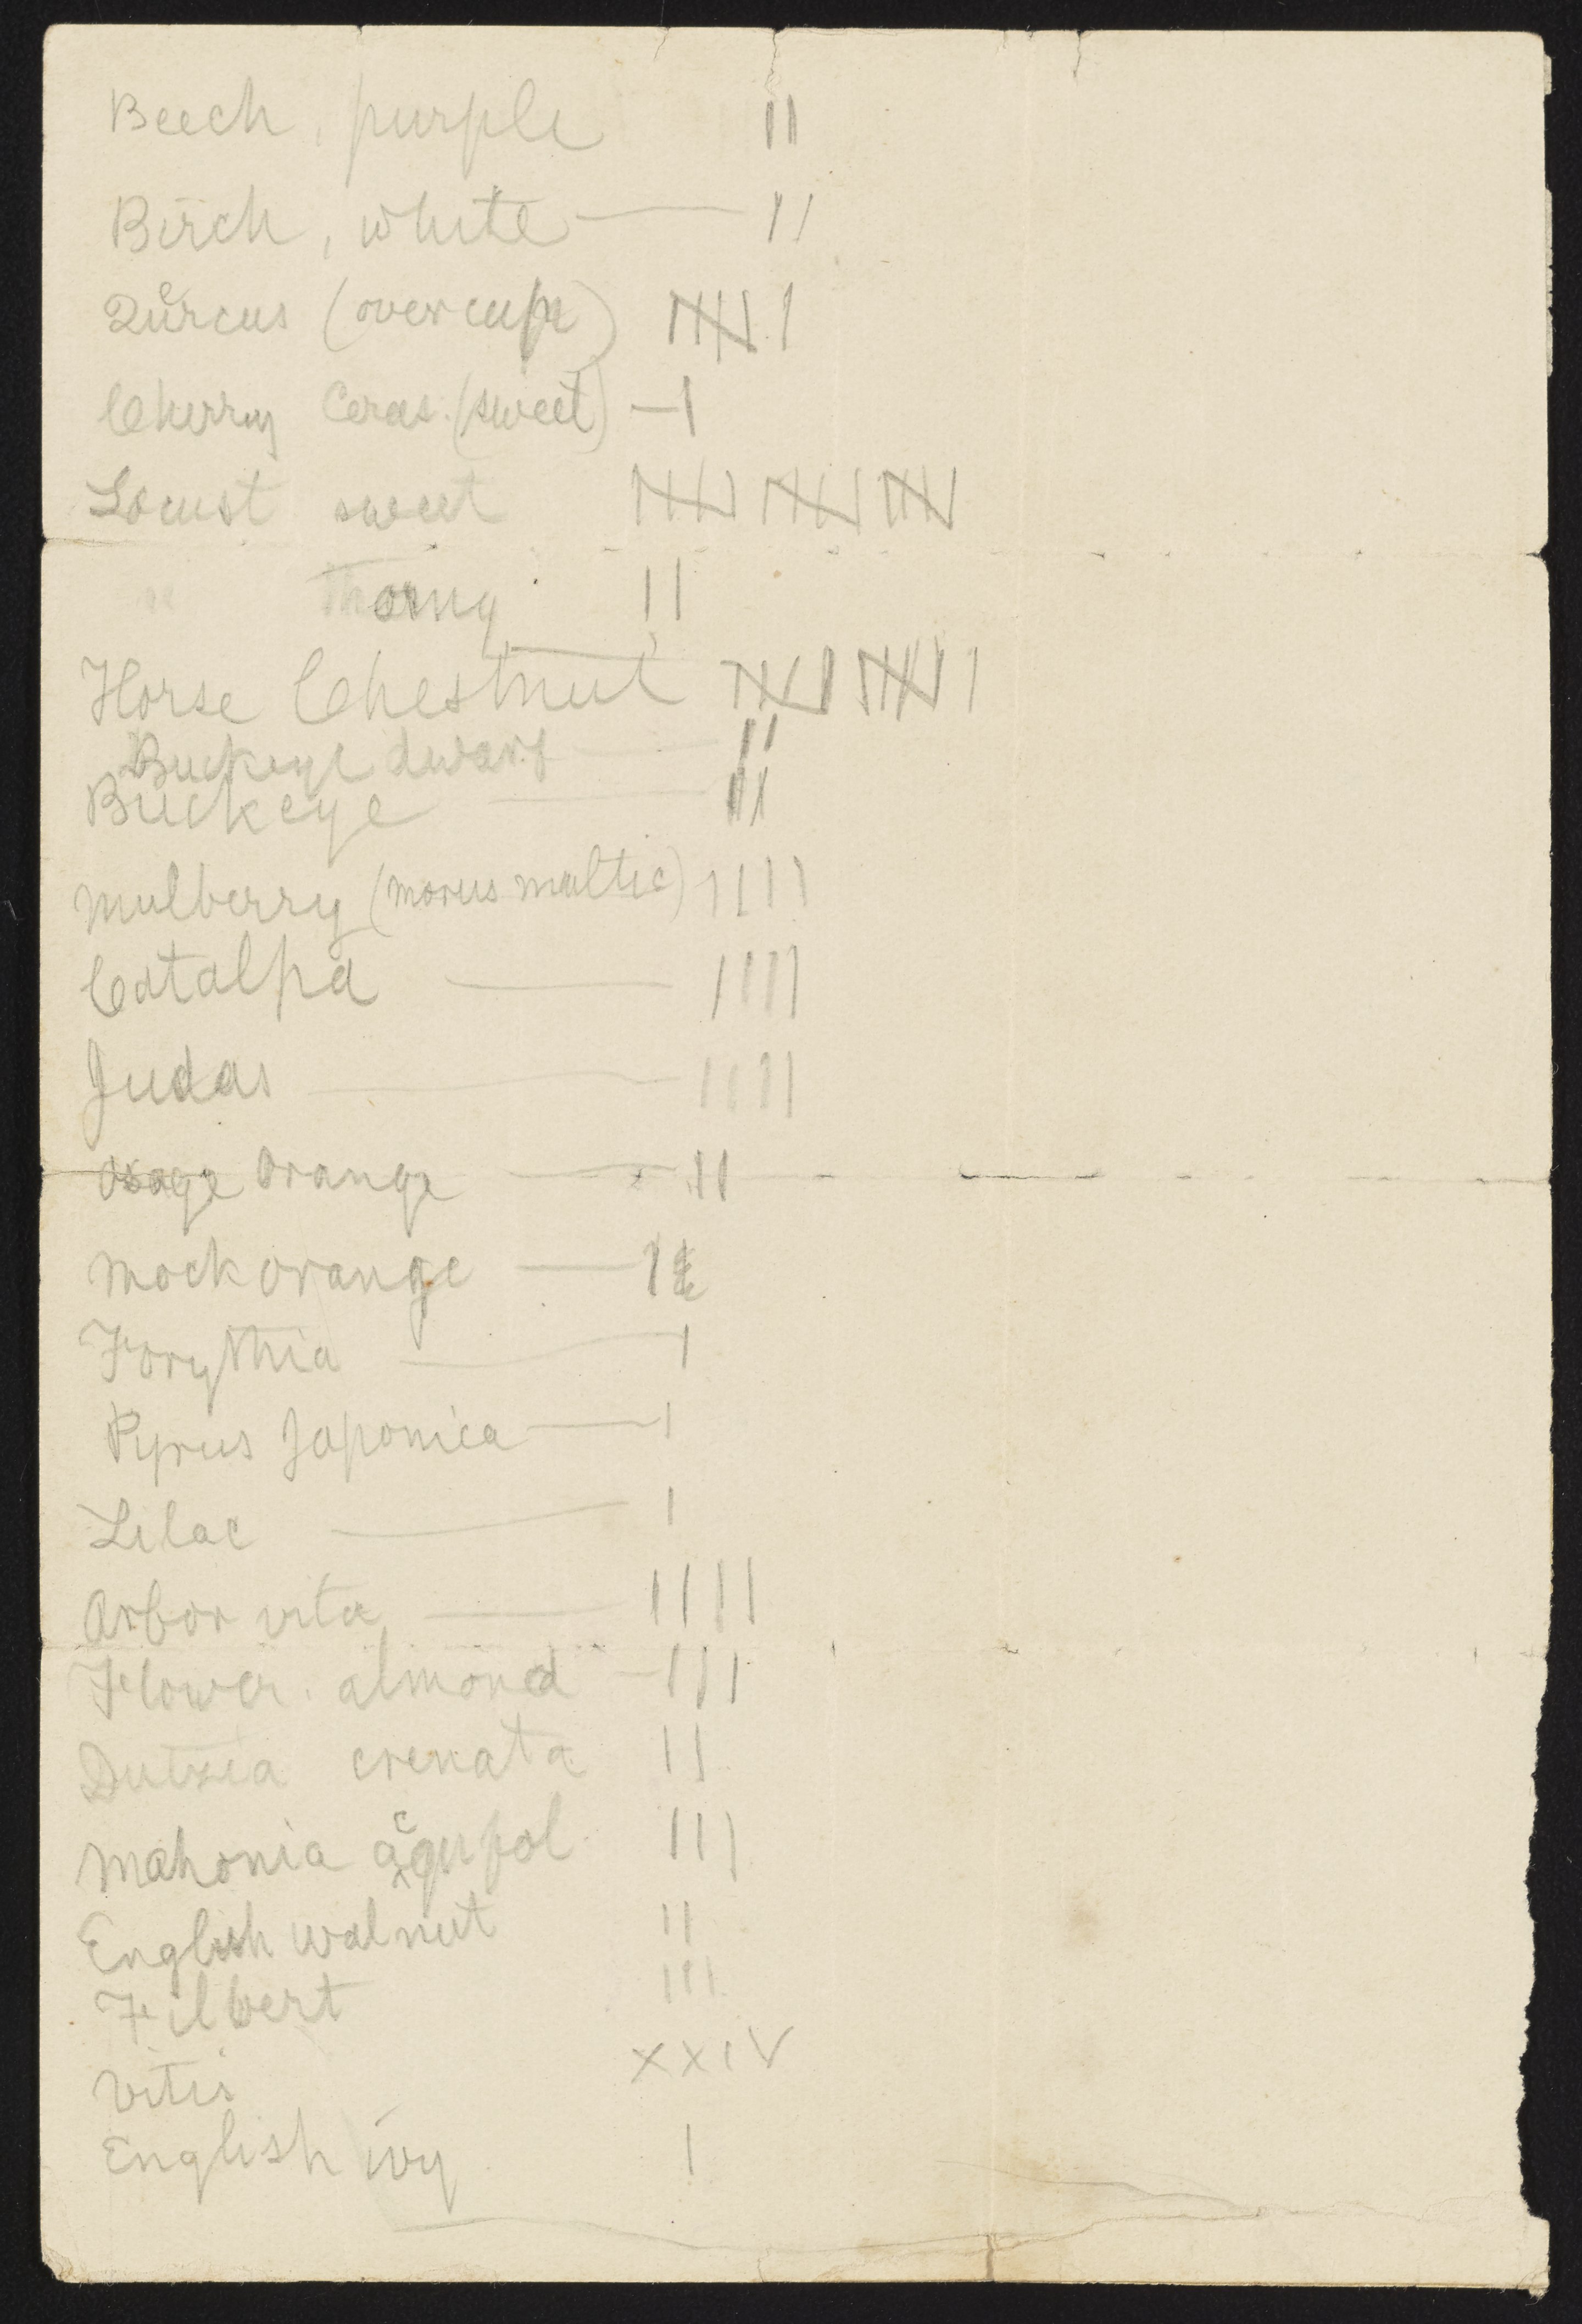 Beech, purple II
Birch, white — II
Quercus (overcup) IIII I
Cherry Ceras. (sweet) — I
Locust sweet IIII IIII IIII
" thorny II
Horse Chestnut IIII IIII I
Buckeye dwarf — II
Buckeye — II
Mulberry (morus multic) IIII
Catalpa — IIII
Judas — IIII
Osage Orange — II
Mock orange — I
Forythia — I
Pyrus Japonica — I
Lilac — I
Arbor vita — IIII
Flower. almond — III
Dutzia crenata II
Mahonia acqufol III
English walnut II
Filbert III
Vitis XXIV
English ivy I